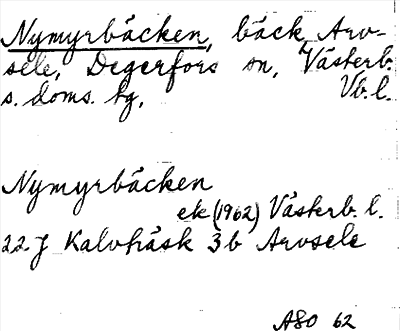 Nymyrbäcken, bäck, Arv-
sele, Degerfors sn, Västerb.
s. doms. tg, Vb. l.
Nymyrbäcken
ek (1962) Västerb. l.
22 J Kalvträsk 3 b Arvsele
ASO 62